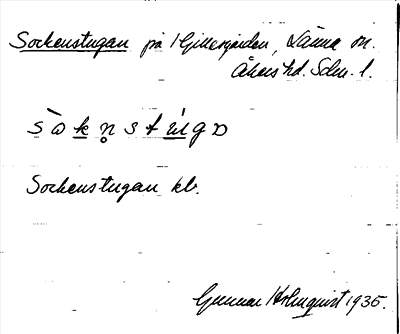 Sockenstugan på Hjillersgården, Länna sn.
Åkers hd. Sdm. l.
s ò̀ k n̥ s t ɯ́ g ɒ
Sockenstugan kb.
Gunnar Holmquist 1935.